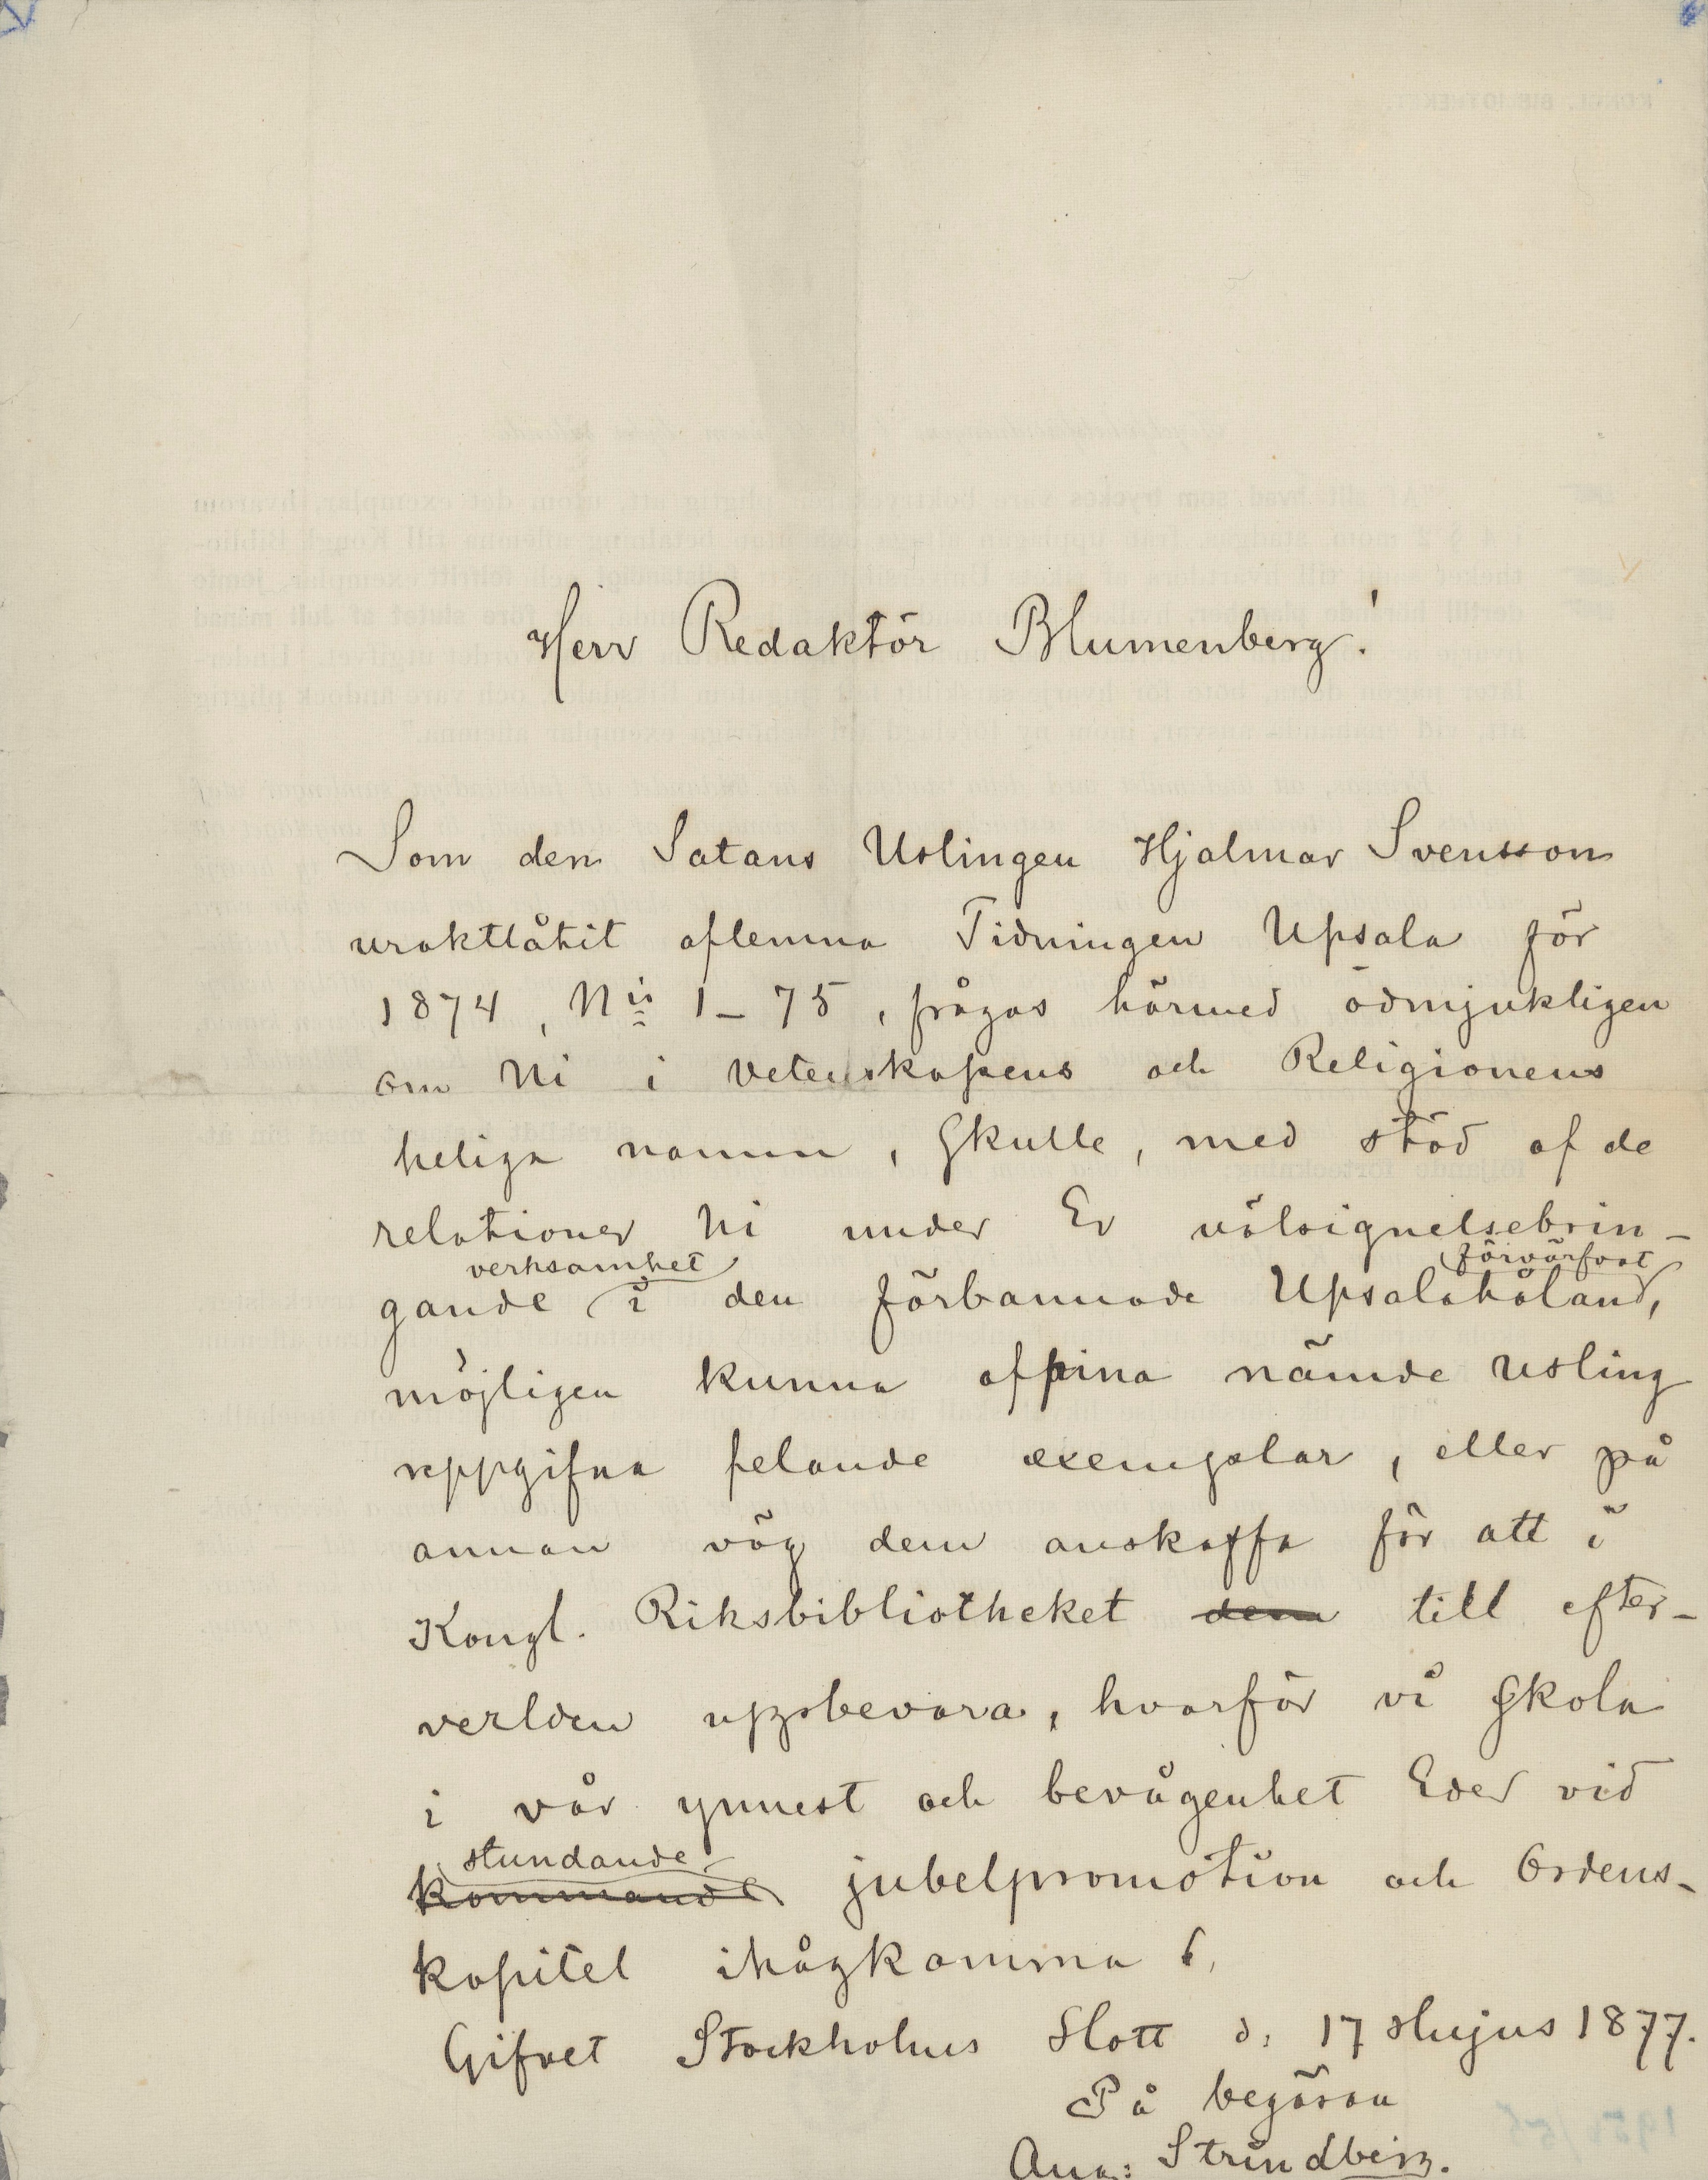 Herr Redaktör Blumenberg!
Som den Satans Uslingen Hjalmar Svensson
uraktlåtit aflemna Tidningen Upsala för
1874, N:is 1–75, frågas härmed ödmjukligen
om Ni i Vetenskapens och Religionens
heliga namn, Skulle, med stöd af de
relationer Ni under Er välsignelsebrin-
verksamhet förvärfvat
gande i den förbannade Upsalahåland,
möjligen kunna afpina nämde usling
uppgifna felande exemplar, eller på
annan väg dem anskaffa för att i
Kongl. Riksbibliotheket dem till efter-
verlden uppbevara, hvarför vi Skola
i vår ynnest och bevågenhet Eder vid
stundande
kommande jubelpromotion och Ordens-
kapitel ihågkomma
Gifvet Stockholms Slott d: 17 Hujus 1877.
På begäran
Aug: Strindberg.